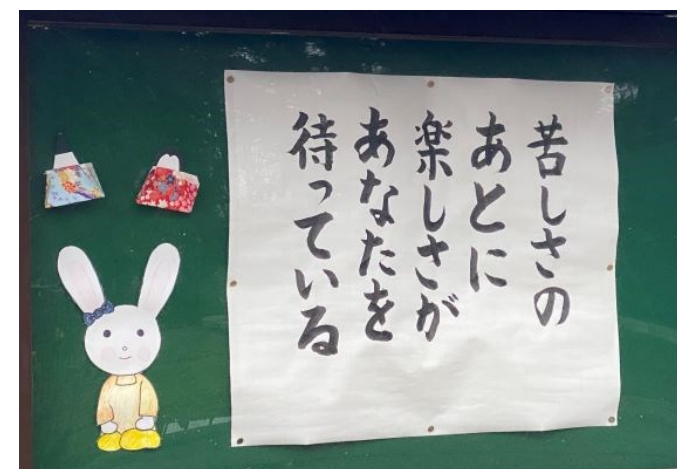 苦しさの
あとに
楽しさが
あなたを
待っている